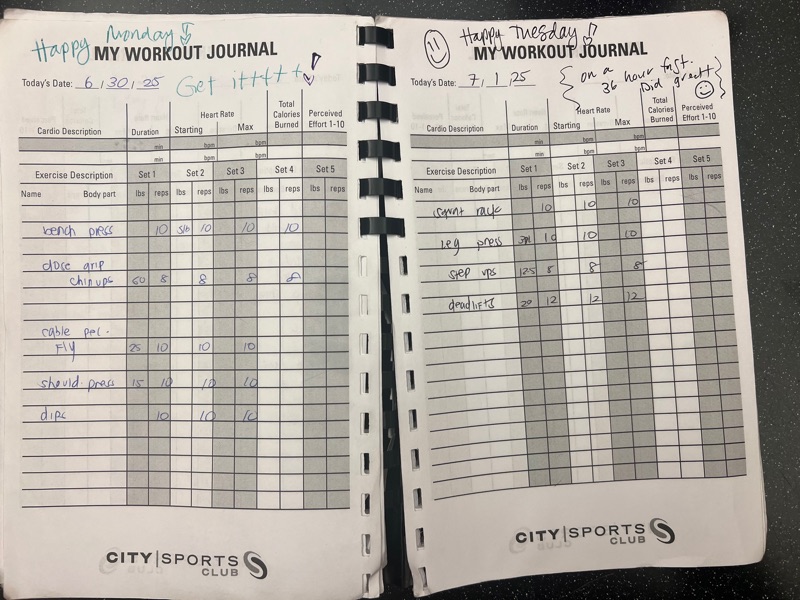 Happy Monday!
MY WORKOUT JOURNAL
Today's Date: 6, 30, 25 Get ittttt!
Heart Rate Total Calories Burned Perceived Effort 1-10
Cardio Description Duration Starting Max
min bpm bpm
min bpm bpm
Exercise Description Set 1 Set 2 Set 3 Set 4 Set 5
Name Body part lbs reps lbs reps lbs reps lbs reps lbs reps
bench press 10 10 10 10
close grip
chin ups 60 8 8 8 8
cable pec.
Fly 25 10 10 10
should. press 15 10 10 10
dips 10 10 10
CITY|SPORTS
CLUB
Happy Tuesday!
MY WORKOUT JOURNAL
Today's Date: 7, 1, 25 on a
36 hour fast.
Did great!
Heart Rate Total Calories Burned Perceived Effort 1-10
Cardio Description Duration Starting Max
min bpm bpm
min bpm bpm
Exercise Description Set 1 Set 2 Set 3 Set 4 Set 5
Name Body part lbs reps lbs reps lbs reps lbs reps lbs reps
rack 10 10 10
leg press 10 10 10
step ups 125 8 8 8
deadlifts 20 12 12 12
CITY|SPORTS
CLUB